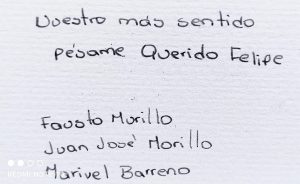 Nuestro más sentido
Pésame Querido Felipe
Fausto Morillo
Juan José Morillo
Marivel Barreno